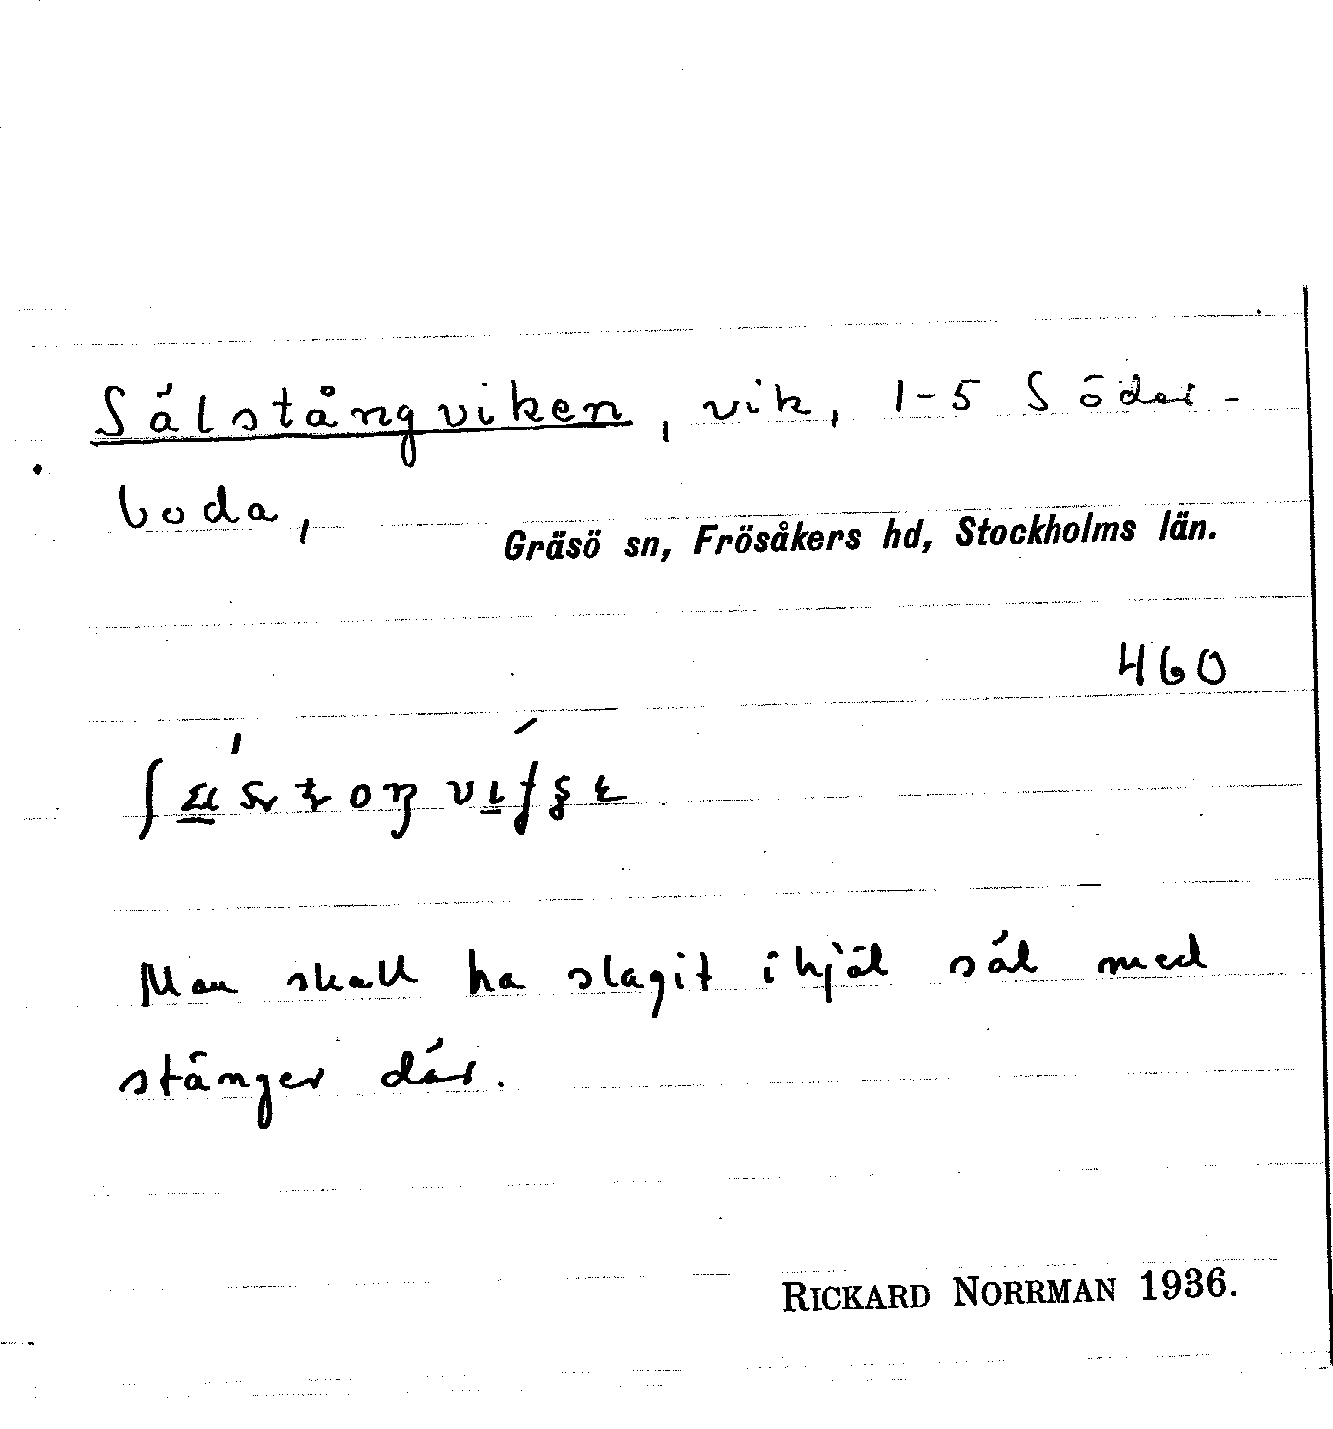 Sälstångviken, vik, 1-5 Söder-
boda,
Gräsö sn, Frösåkers hd, Stockholms län.
460
Man skall ha slagit ihjäl säl med
stänger där.
RICKARD NORRMAN 1936.